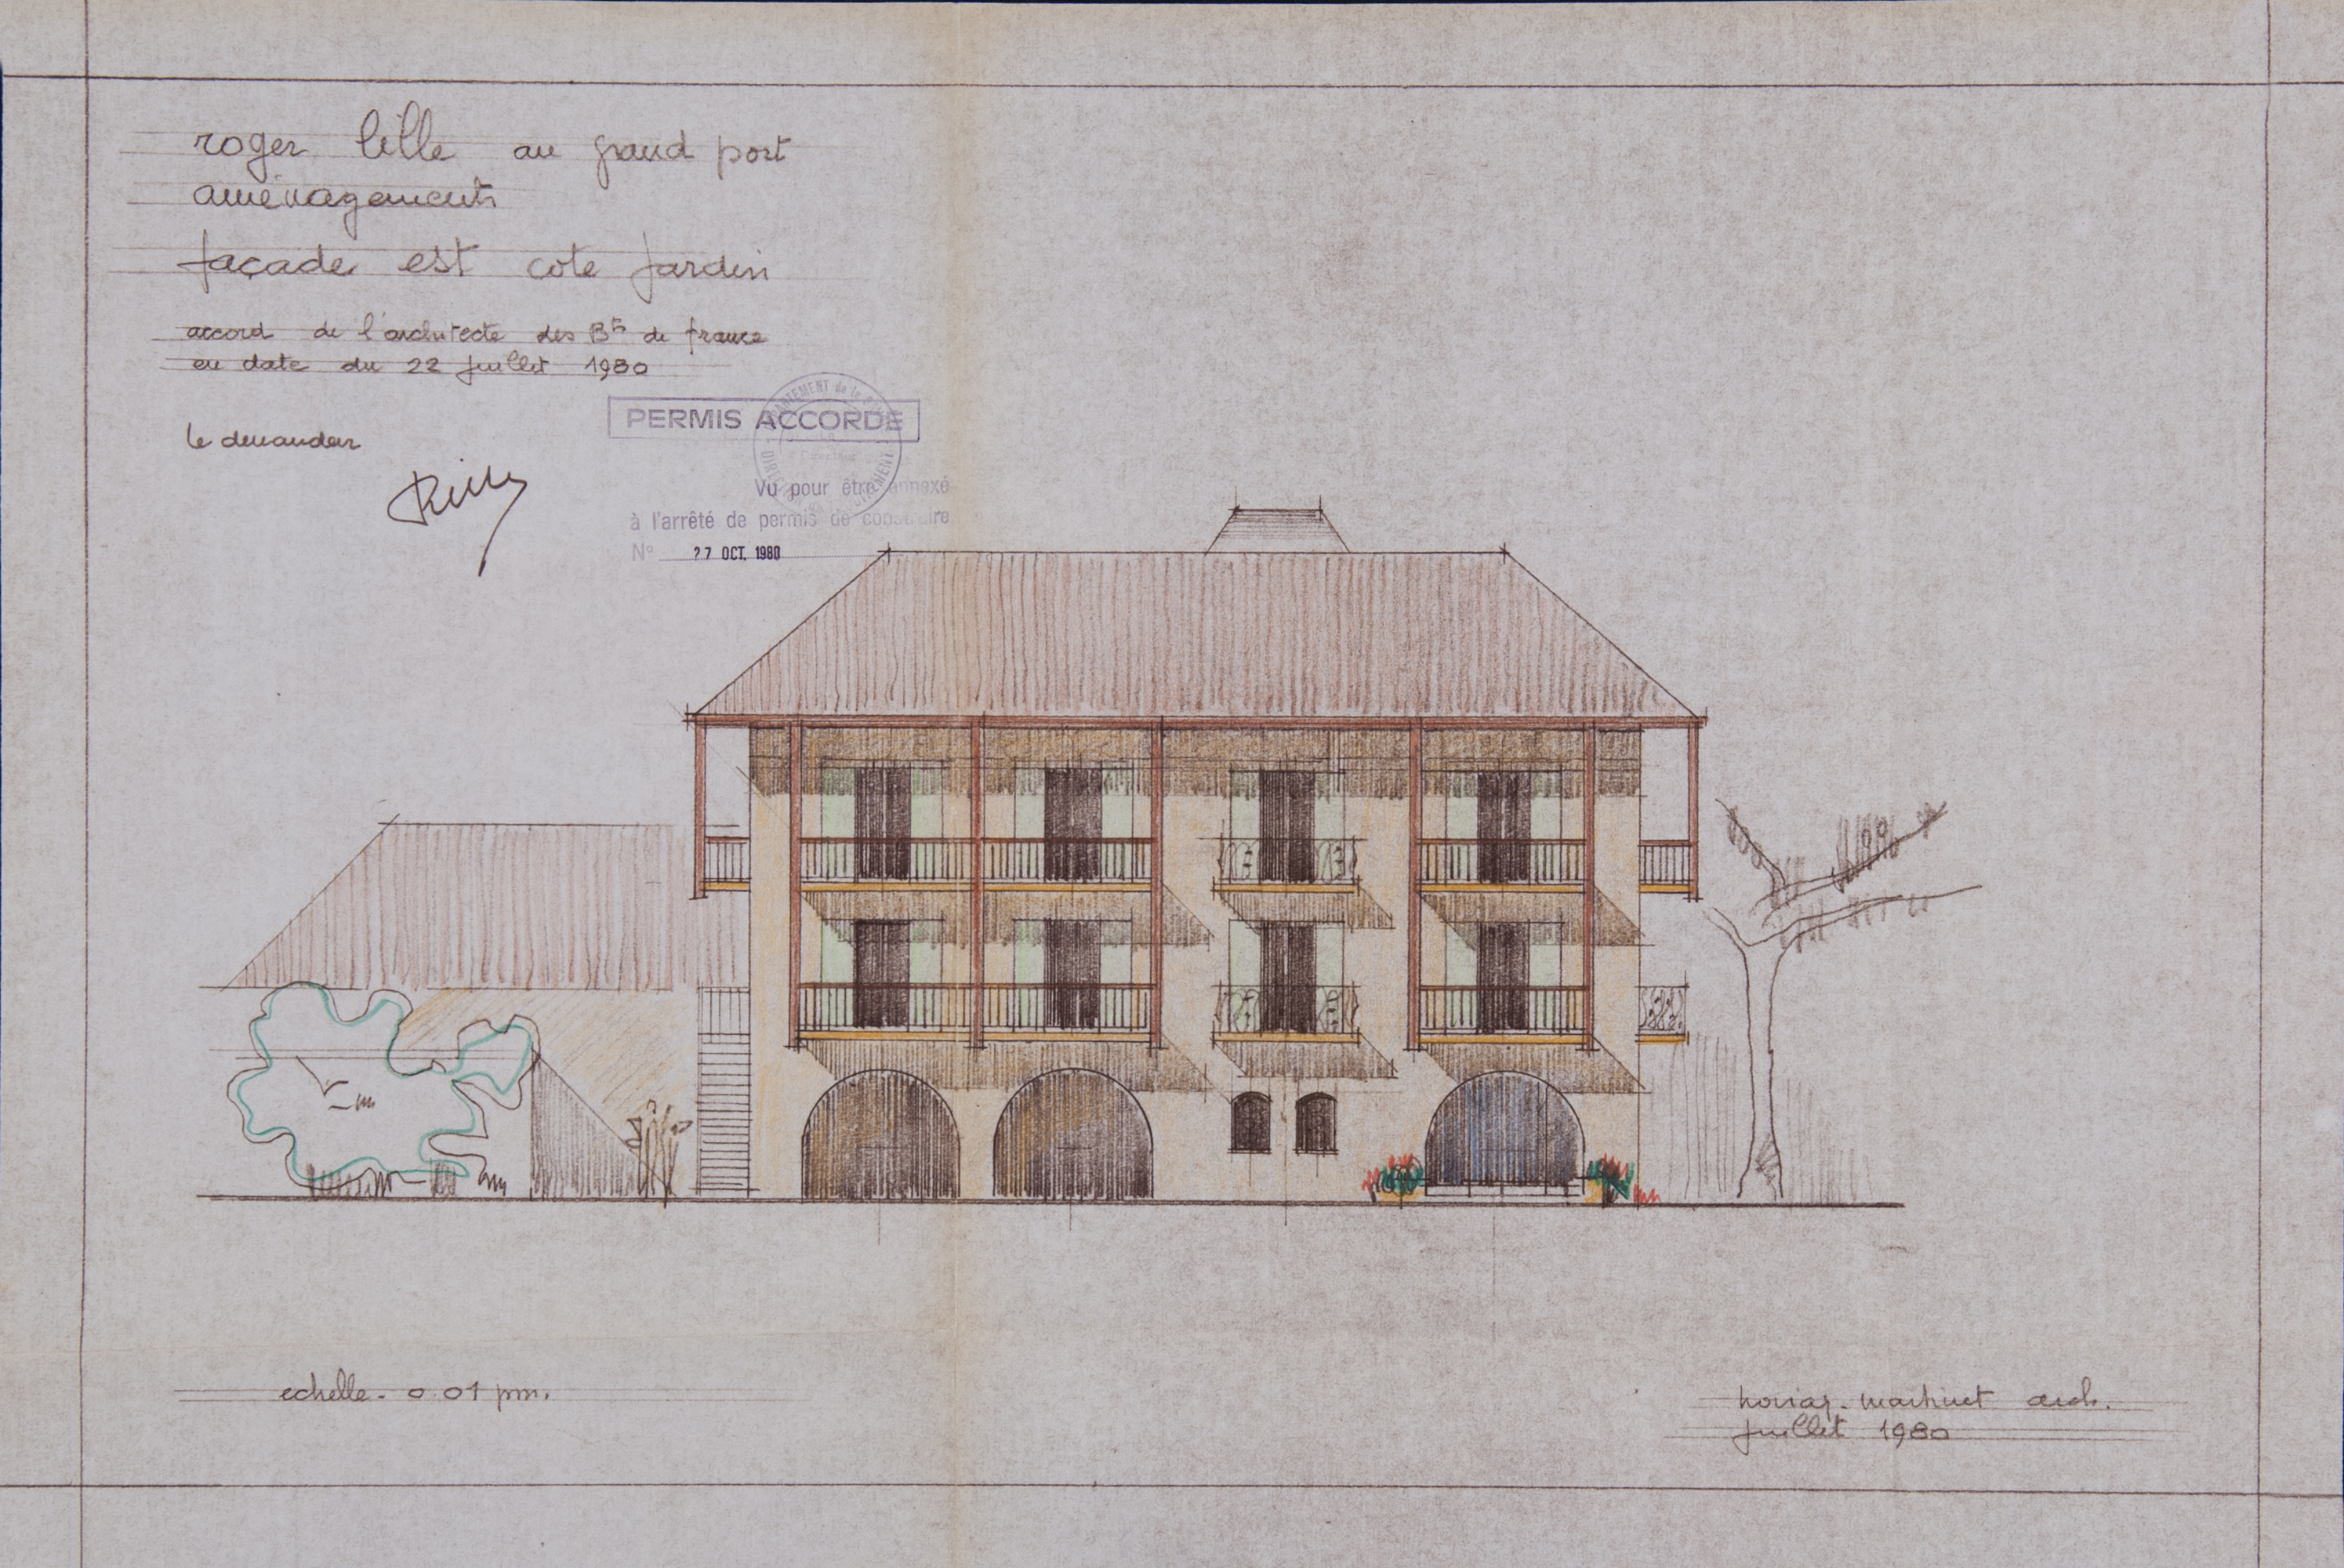 roger lille au grand port
aménagements
façade est cote jardin
accord de l'architecte des Bts de france
en date du 22 juillet 1980
le demandeur
PERMIS ACCORDE
Vu pour être annexé
à l'arrêté de permis de construire
N° 27 OCT. 1980
echelle - 0.01 pm.
martinet arch.
juillet 1980